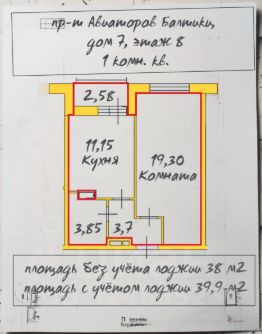 пр-т Авиаторов Балтики,
дом 7, этаж 8
1 комн. кв.
2,58
11,15
Кухня
19,30
Комната
3,85
3,7
площадь без учёта лоджии 38 м2
площадь с учётом лоджии 39,9 м2